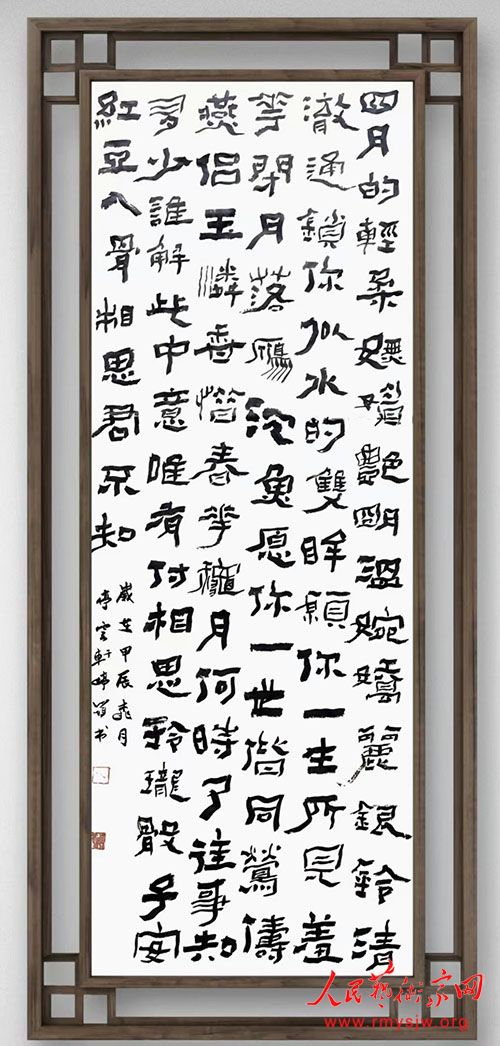 四月的輕柔嫵豔明溫婉嬌麗銀鈴清
澈通鎖你似水的雙眸願你一生所見羞
等閉月落鴈沉魚愿你一世皆同鶯儔
燕侣玉憐香惜春花龝月何時了往事知
多少誰解此中意唯有付相思玲瓏骰子安
紅豆入骨相思君不知
歲在甲辰月
亭雲軒婷书
人民藝術家网
www.rmysjw.org